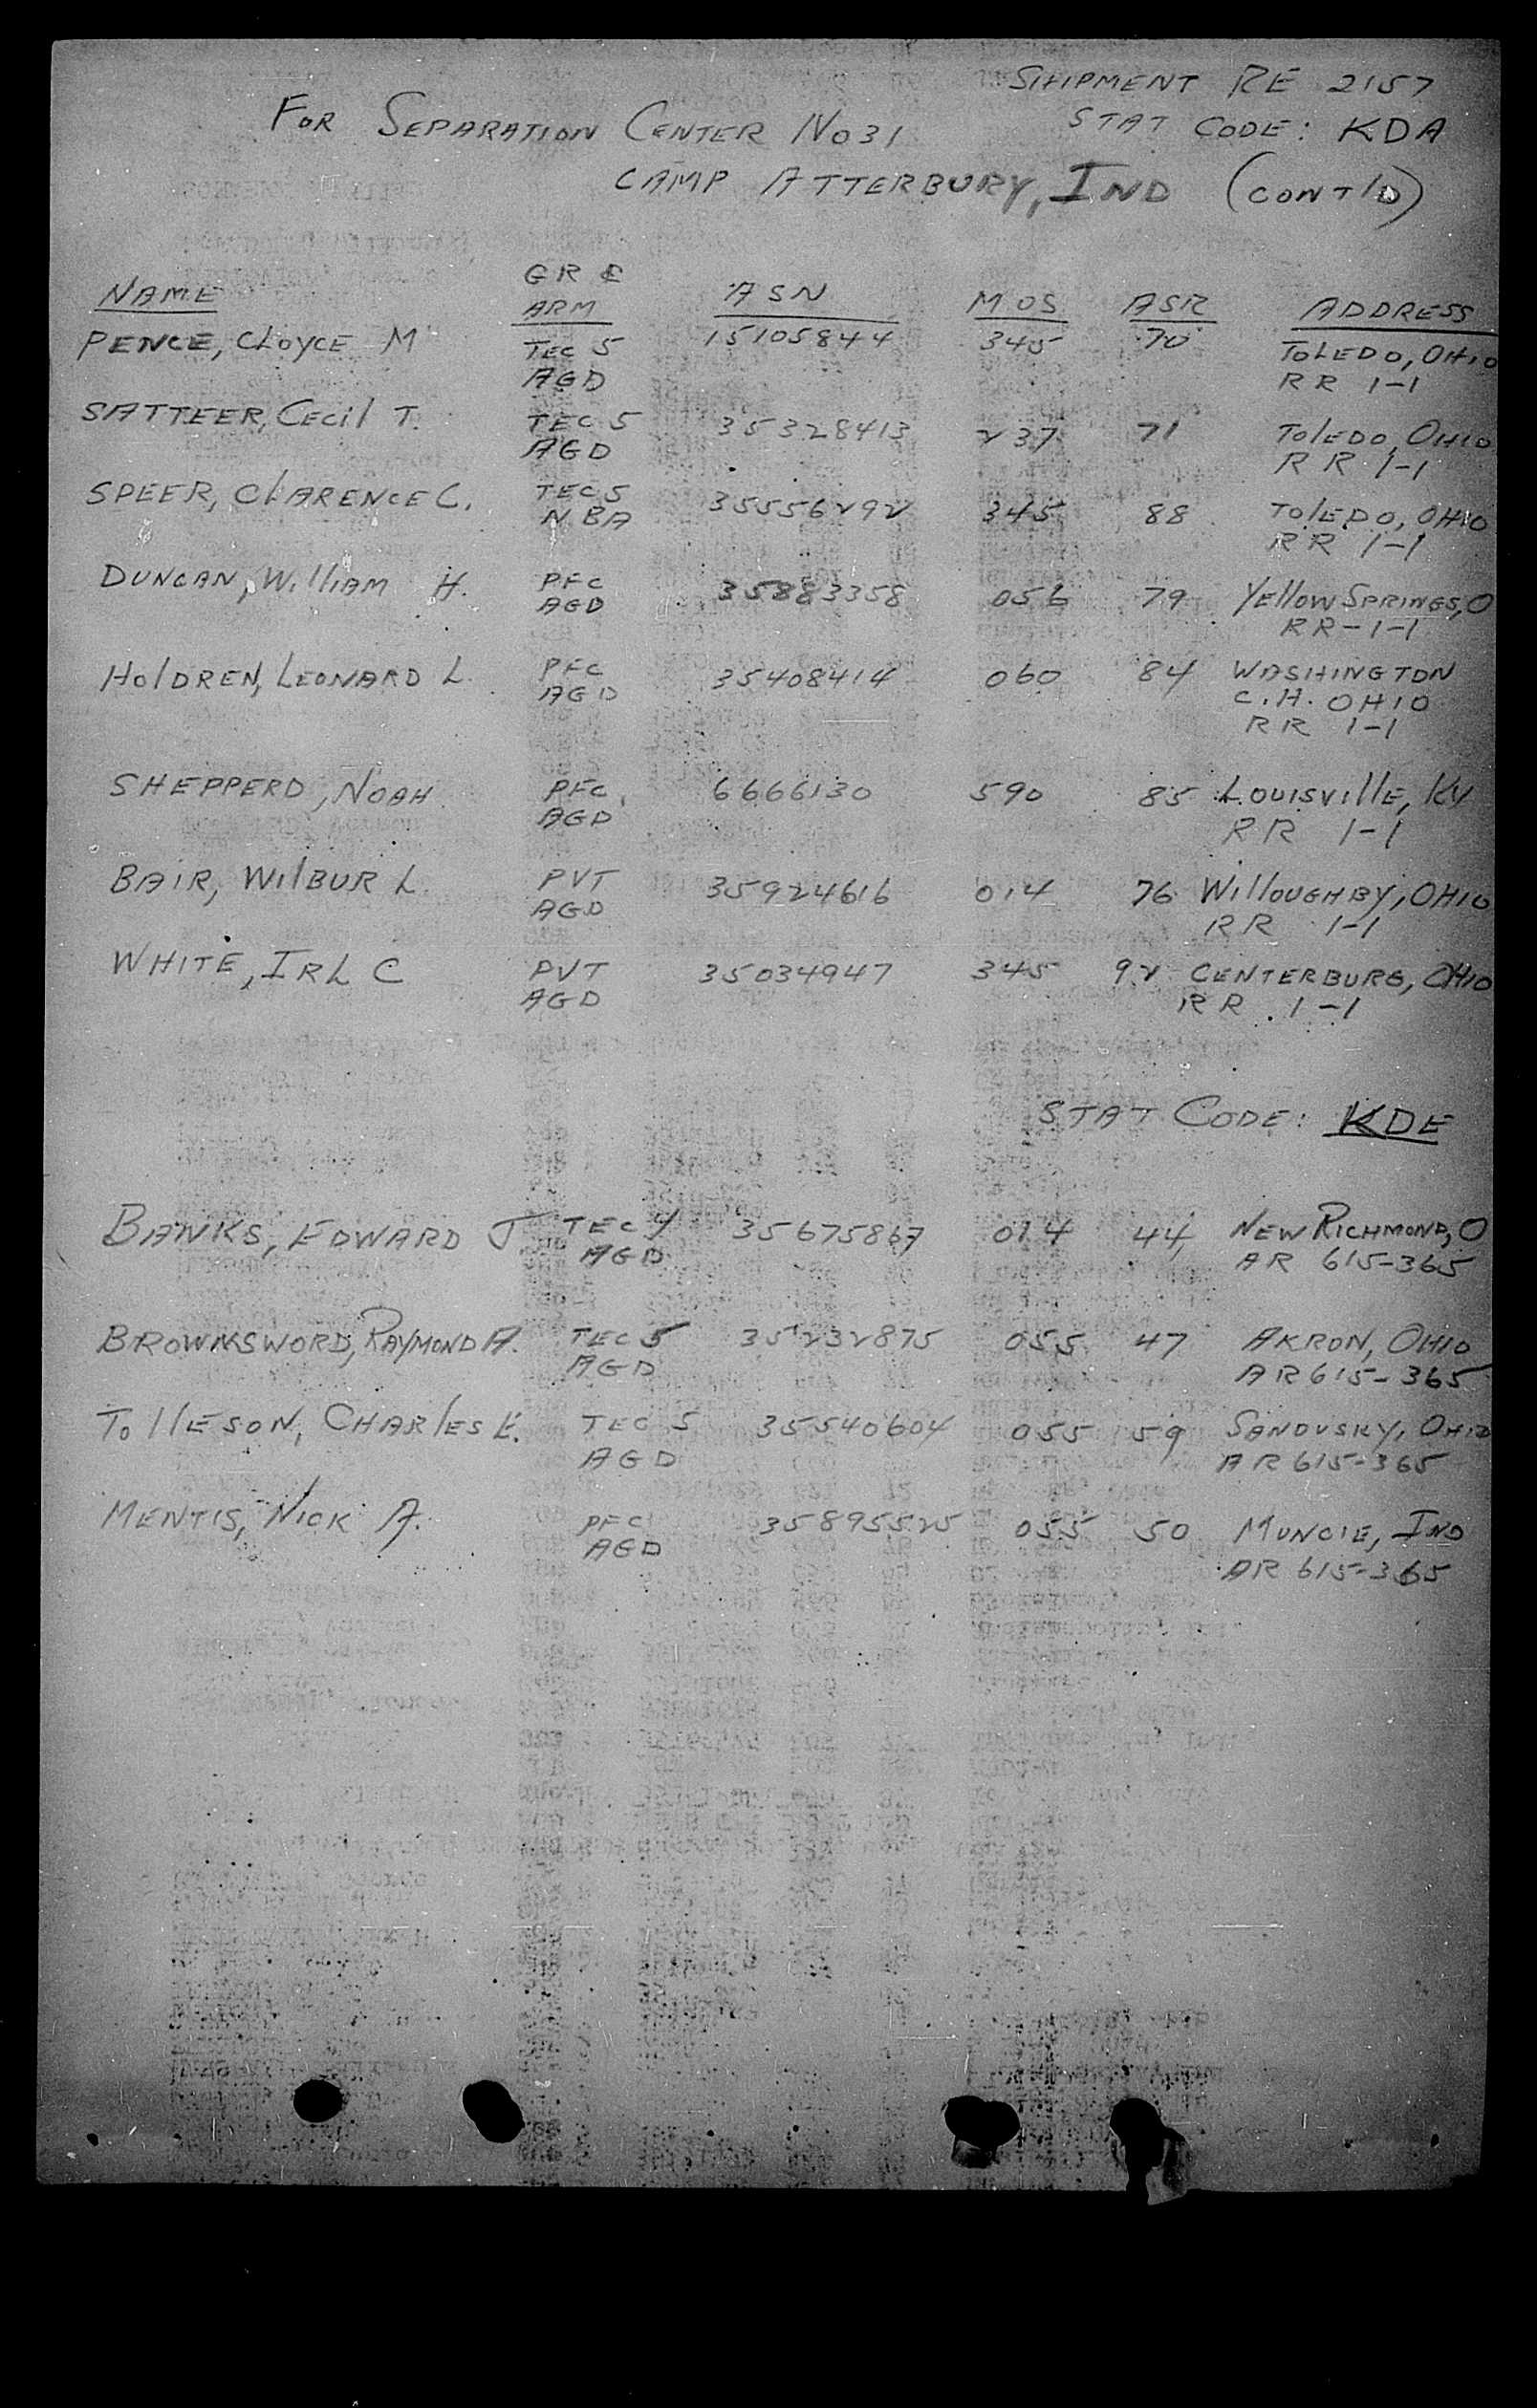 SHIPMENT RE 2157
FOR SEPARATION CENTER NO 31 STAT CODE: KDA
CAMP ATTERBURY, IND (CONT'D)
GR &
NAME ARM ASN MOS ASR ADDRESS
PENCE, CLOYCE M TEC 5 15105844 345 70 TOLEDO, OHIO
AGD RR 1-1
SATTEER, CECIL T. TEC 5 35328413 237 71 TOLEDO, OHIO
AGD RR 1-1
SPEER, CLARENCE C. TEC 5 35556292 345 88 TOLEDO, OHIO
NBA RR 1-1
DUNCAN, WILLIAM H. PFC 35883358 056 79 YELLOW SPRINGS, O
AGD RR-1-1
HOLDREN, LEONARD L. PFC 35408414 060 84 WASHINGTON
AGD C.H. OHIO
RR 1-1
SHEPPERD, NOAH PFC 6666130 590 85 LOUISVILLE, KY
AGD RR 1-1
BAIR, WILBUR L. PVT 35924616 014 76 WILLOUGHBY, OHIO
AGD RR 1-1
WHITE, IRL C PVT 35034947 345 92 CENTERBURG, OHIO
AGD RR 1-1
STAT CODE: KDE
BANKS, EDWARD J TEC 4 35675867 014 44 NEW RICHMOND, O
AGD AR 615-365
BROWNSWORD, RAYMOND A. TEC 5 35232875 055 47 AKRON, OHIO
AGD AR 615-365
TOLLESON, CHARLES E. TEC 5 35540604 055 59 SANDUSKY, OHIO
AGD AR 615-365
MENTIS, NICK A. PFC 35895525 055 50 MUNCIE, IND
AGD AR 615-365